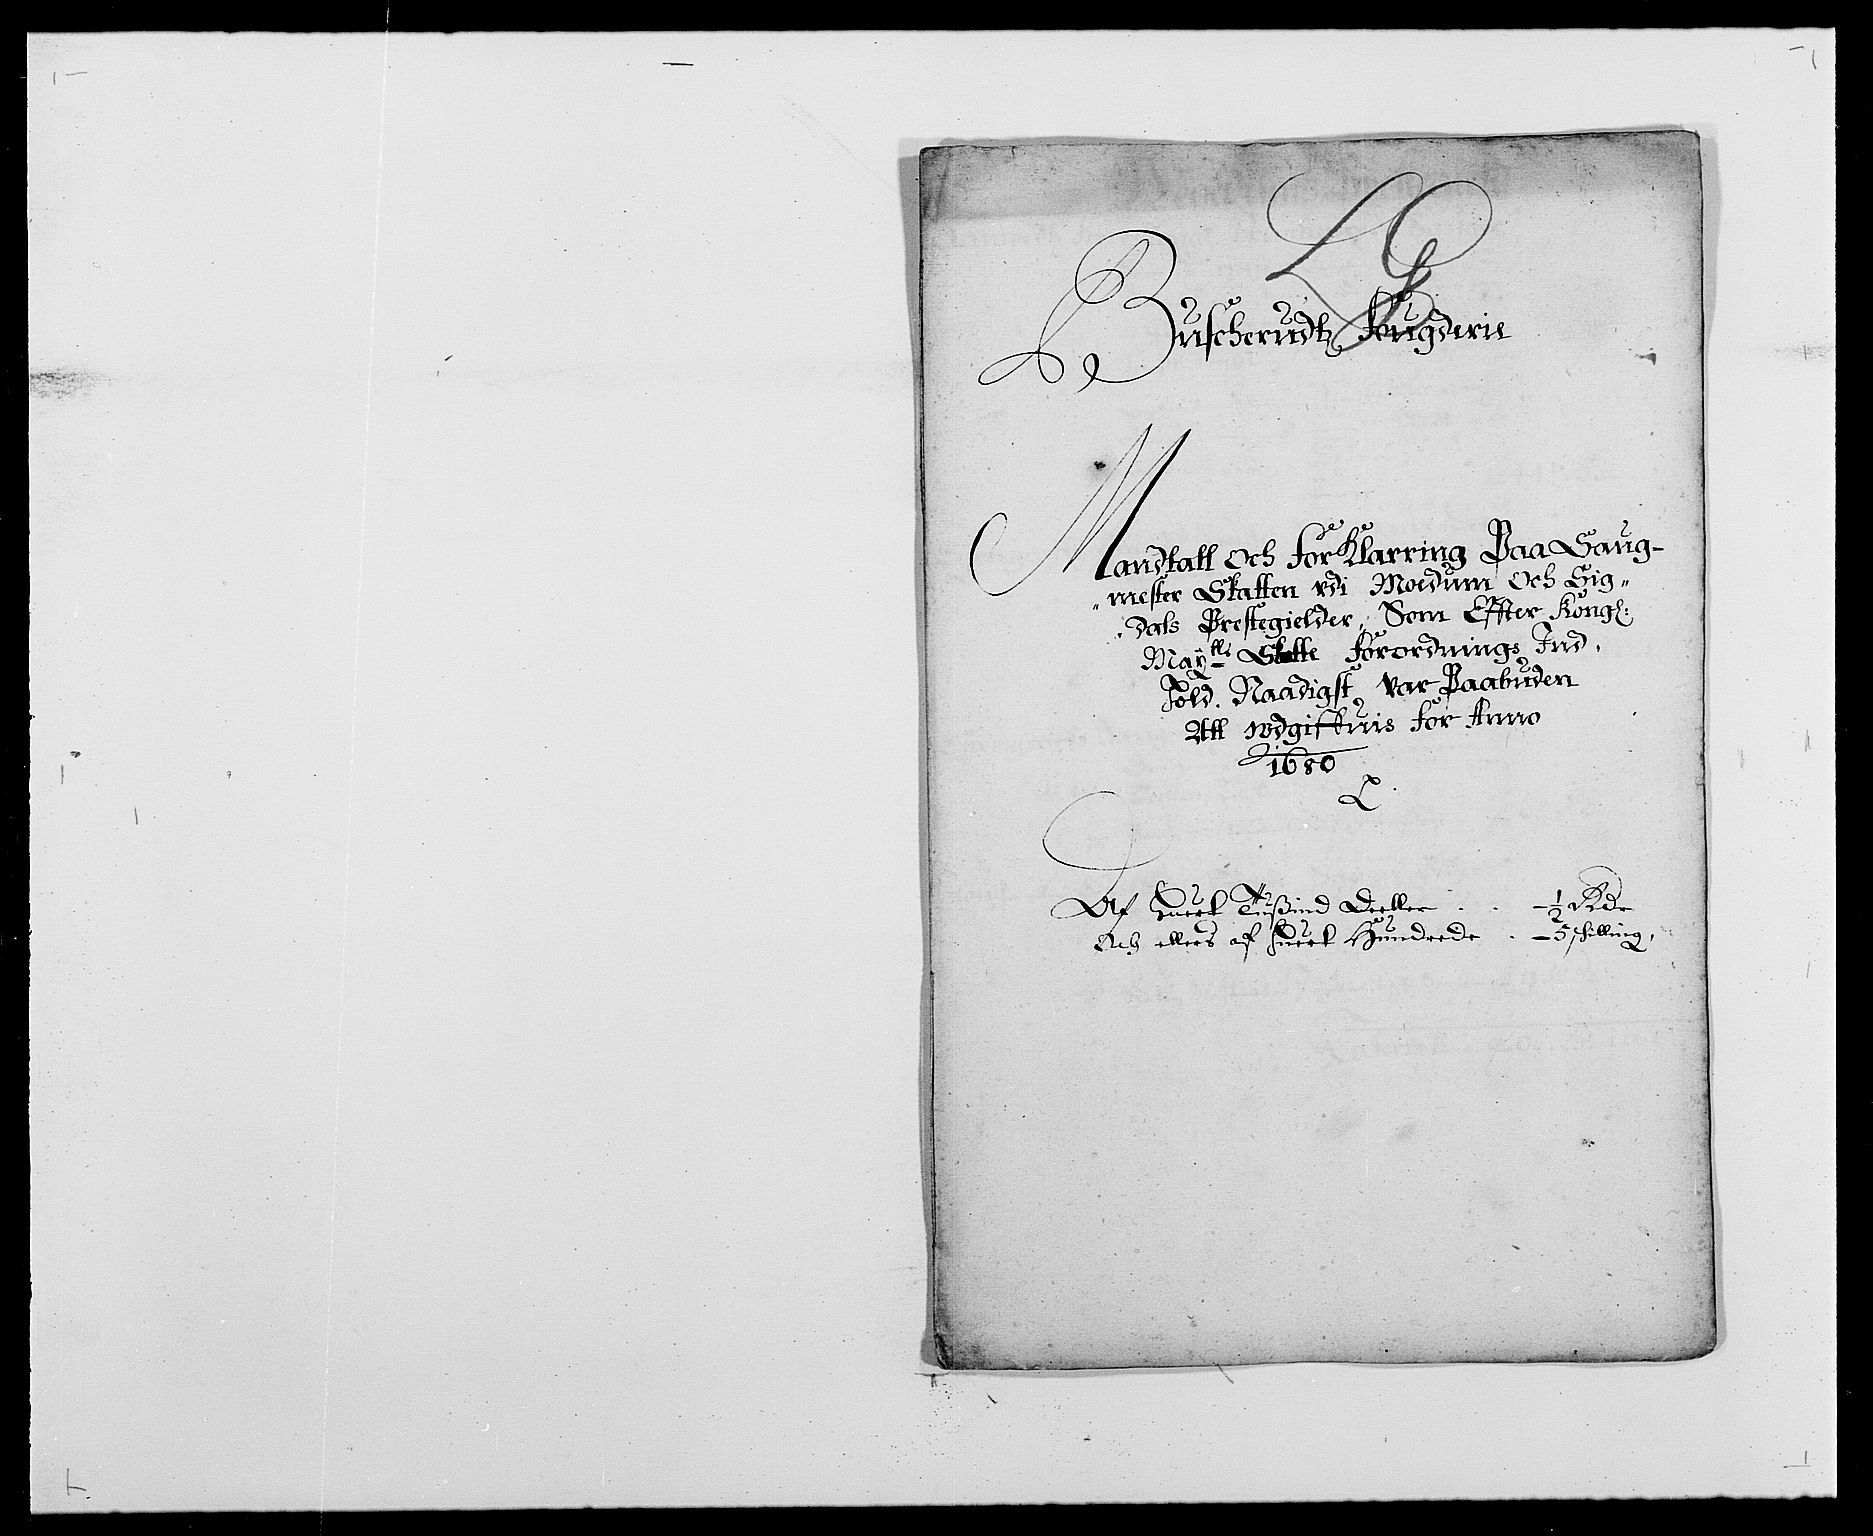 Buscherudtz fougderie
Mandtall Och forKlarring Paa Saug-
mester Skatten vdi Moedum Och Sig-
dals Prestegielder, Som Effter Kongl:
May:tts Skatte forordnings Ind-
hold Naadigst var Paabuden
Att wdgiftuis for Anno
1680
Af huert Tußind Deeller - - ½ Rdr
Och ellers af huert Hundrede - 5 schilling